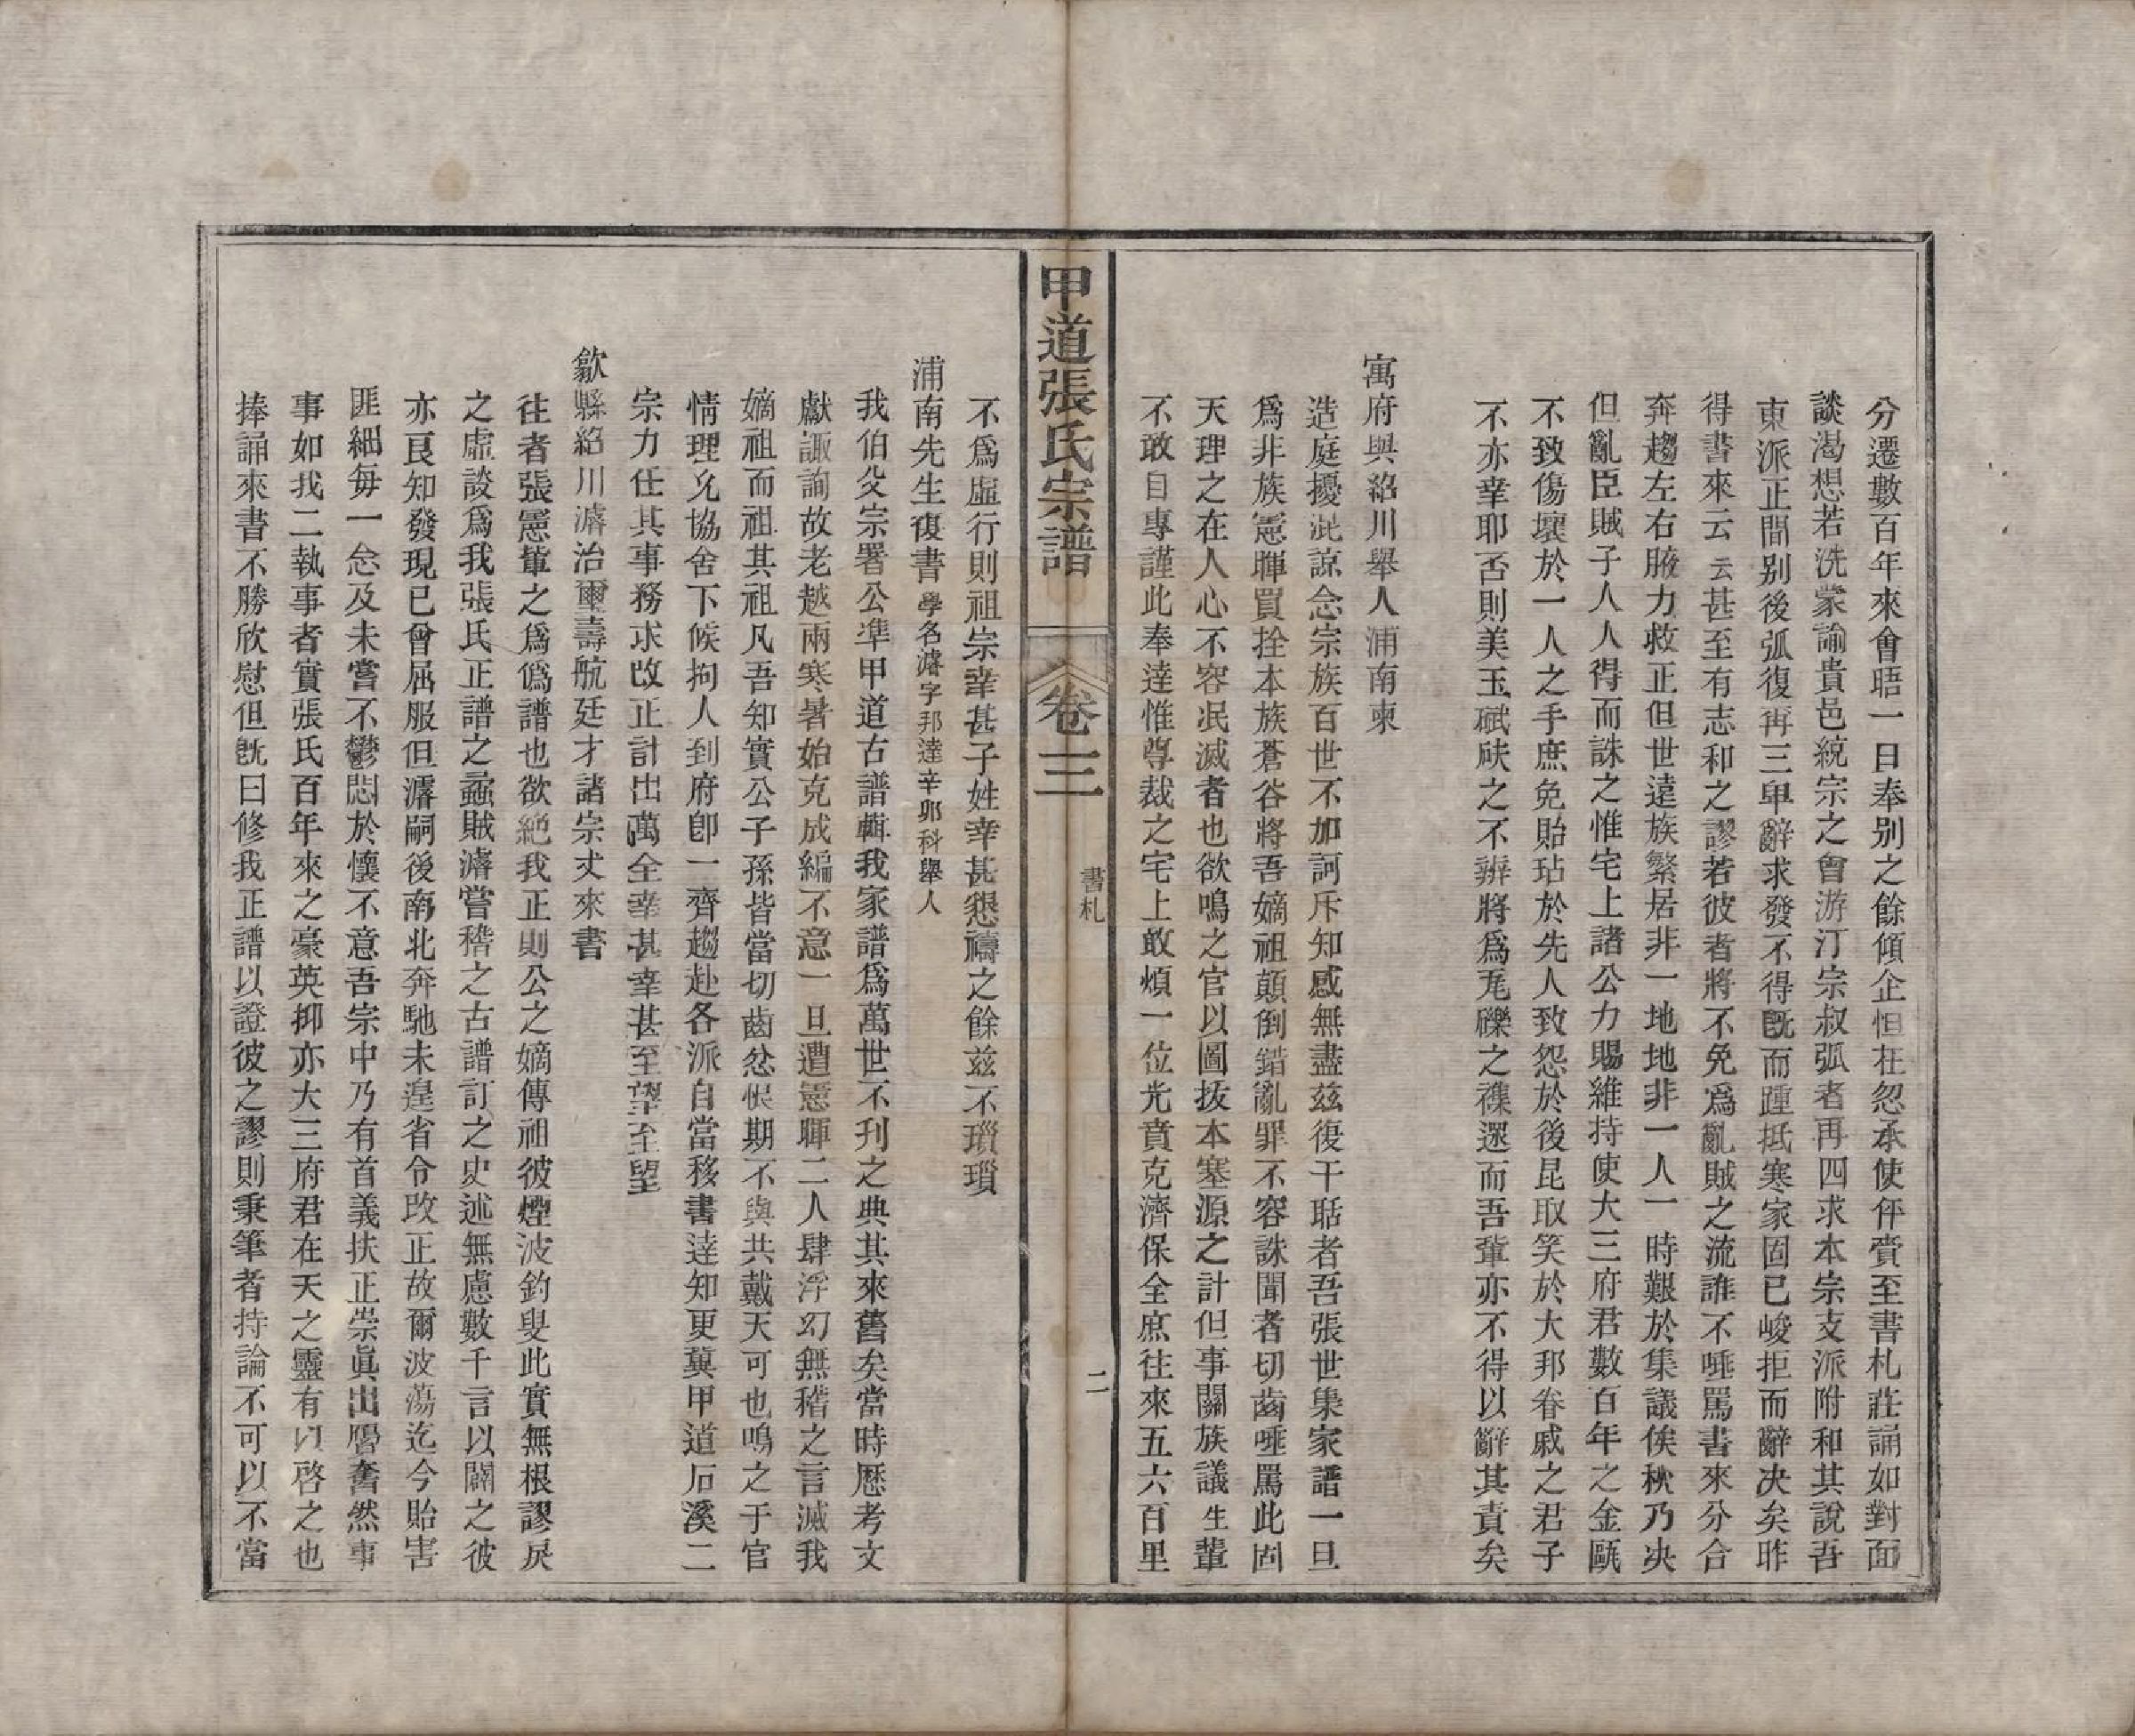 分遷數百年來會晤一日奉别之餘傾企怛枉忽承使伻賫至書札莊誦如對面
談渴想若洗蒙諭貴邑統宗之會游汀宗叔弧者再四求本宗支派附和其說吾
東派正間别後弧復再三卑辭求發不得旣而踵抵寒家固已峻拒而辭决矣昨
得書來云云甚至有志和之謬若彼者將不免爲亂賊之流誰不唾罵書來分合
奔趨左右腋力救正但世遠族繁居非一地地非一人一時艱於集議俟秋乃决
但亂臣賊子人人得而誅之惟宅上諸公力賜維持使大三府君數百年之金甌
不致傷壞於一人之手庶免貽玷於先人致怨於後昆取笑於大邦眷戚之君子
不亦幸耶否則美玉碔砆之不辨將爲𠒋礫之襍還而吾軰亦不得以辭其責矣
寓府與紹川舉人浦南柬
造庭擾混諒念宗族百世不加訶斥知感無盡茲復干聒者吾張世集家譜一旦
爲非族憲暉買拴本族蒼谷將吾嫡祖顛倒錯亂罪不容誅聞者切齒唾罵此固
天理之在人心不容泯滅者也欲鳴之官以圖拔本塞源之計但事關族議生輩
不敢自專謹此奉達惟尊裁之宅上敢煩一位光賁克濟保全庶往來五六百里
甲道張氏宗譜
卷三
書札
二
不爲虛行則祖宗幸甚子姓幸甚懇禱之餘茲不瑣瑣
浦南先生復書學名濬字邦達辛卯科舉人
我伯父宗署公凖甲道古譜輯我家譜爲萬世不刊之典其來舊矣當時歷考文
獻諏詢故老越兩寒暑始克成編不意一旦遭憲暉二人肆浮幻無稽之言滅我
嫡祖而祖其祖凡吾知實公子孫皆當切齒忿恨期不與共戴天可也鳴之于官
情理允協舍下候拘人到府卽一齊趨赴各派自當移書達知更冀甲道石溪二
宗力任其事務求改正計出萬全幸甚幸甚至望至望
歙縣紹川濬治璽壽航廷才諸宗丈來書
往者張憲軰之爲僞譜也欲絕我正則公之嫡傳祖彼煙波釣叟此實無根謬戾
之虛談爲我張氏正譜之蟊賊濬嘗稽之古譜訂之史述無慮數千言以闢之彼
亦良知發現已曾屈服但濬嗣後南北奔馳未遑省令改正故爾波蕩迄今貽害
匪細每一念及未嘗不鬱悶於懷不意吾宗中乃有首義扶正崇眞出層奮然事
事如我二執事者實張氏百年來之豪英抑亦大三府君在天之靈有以啓之也
捧誦來書不勝欣慰但旣曰修我正譜以證彼之謬則秉筆者持論不可以不當